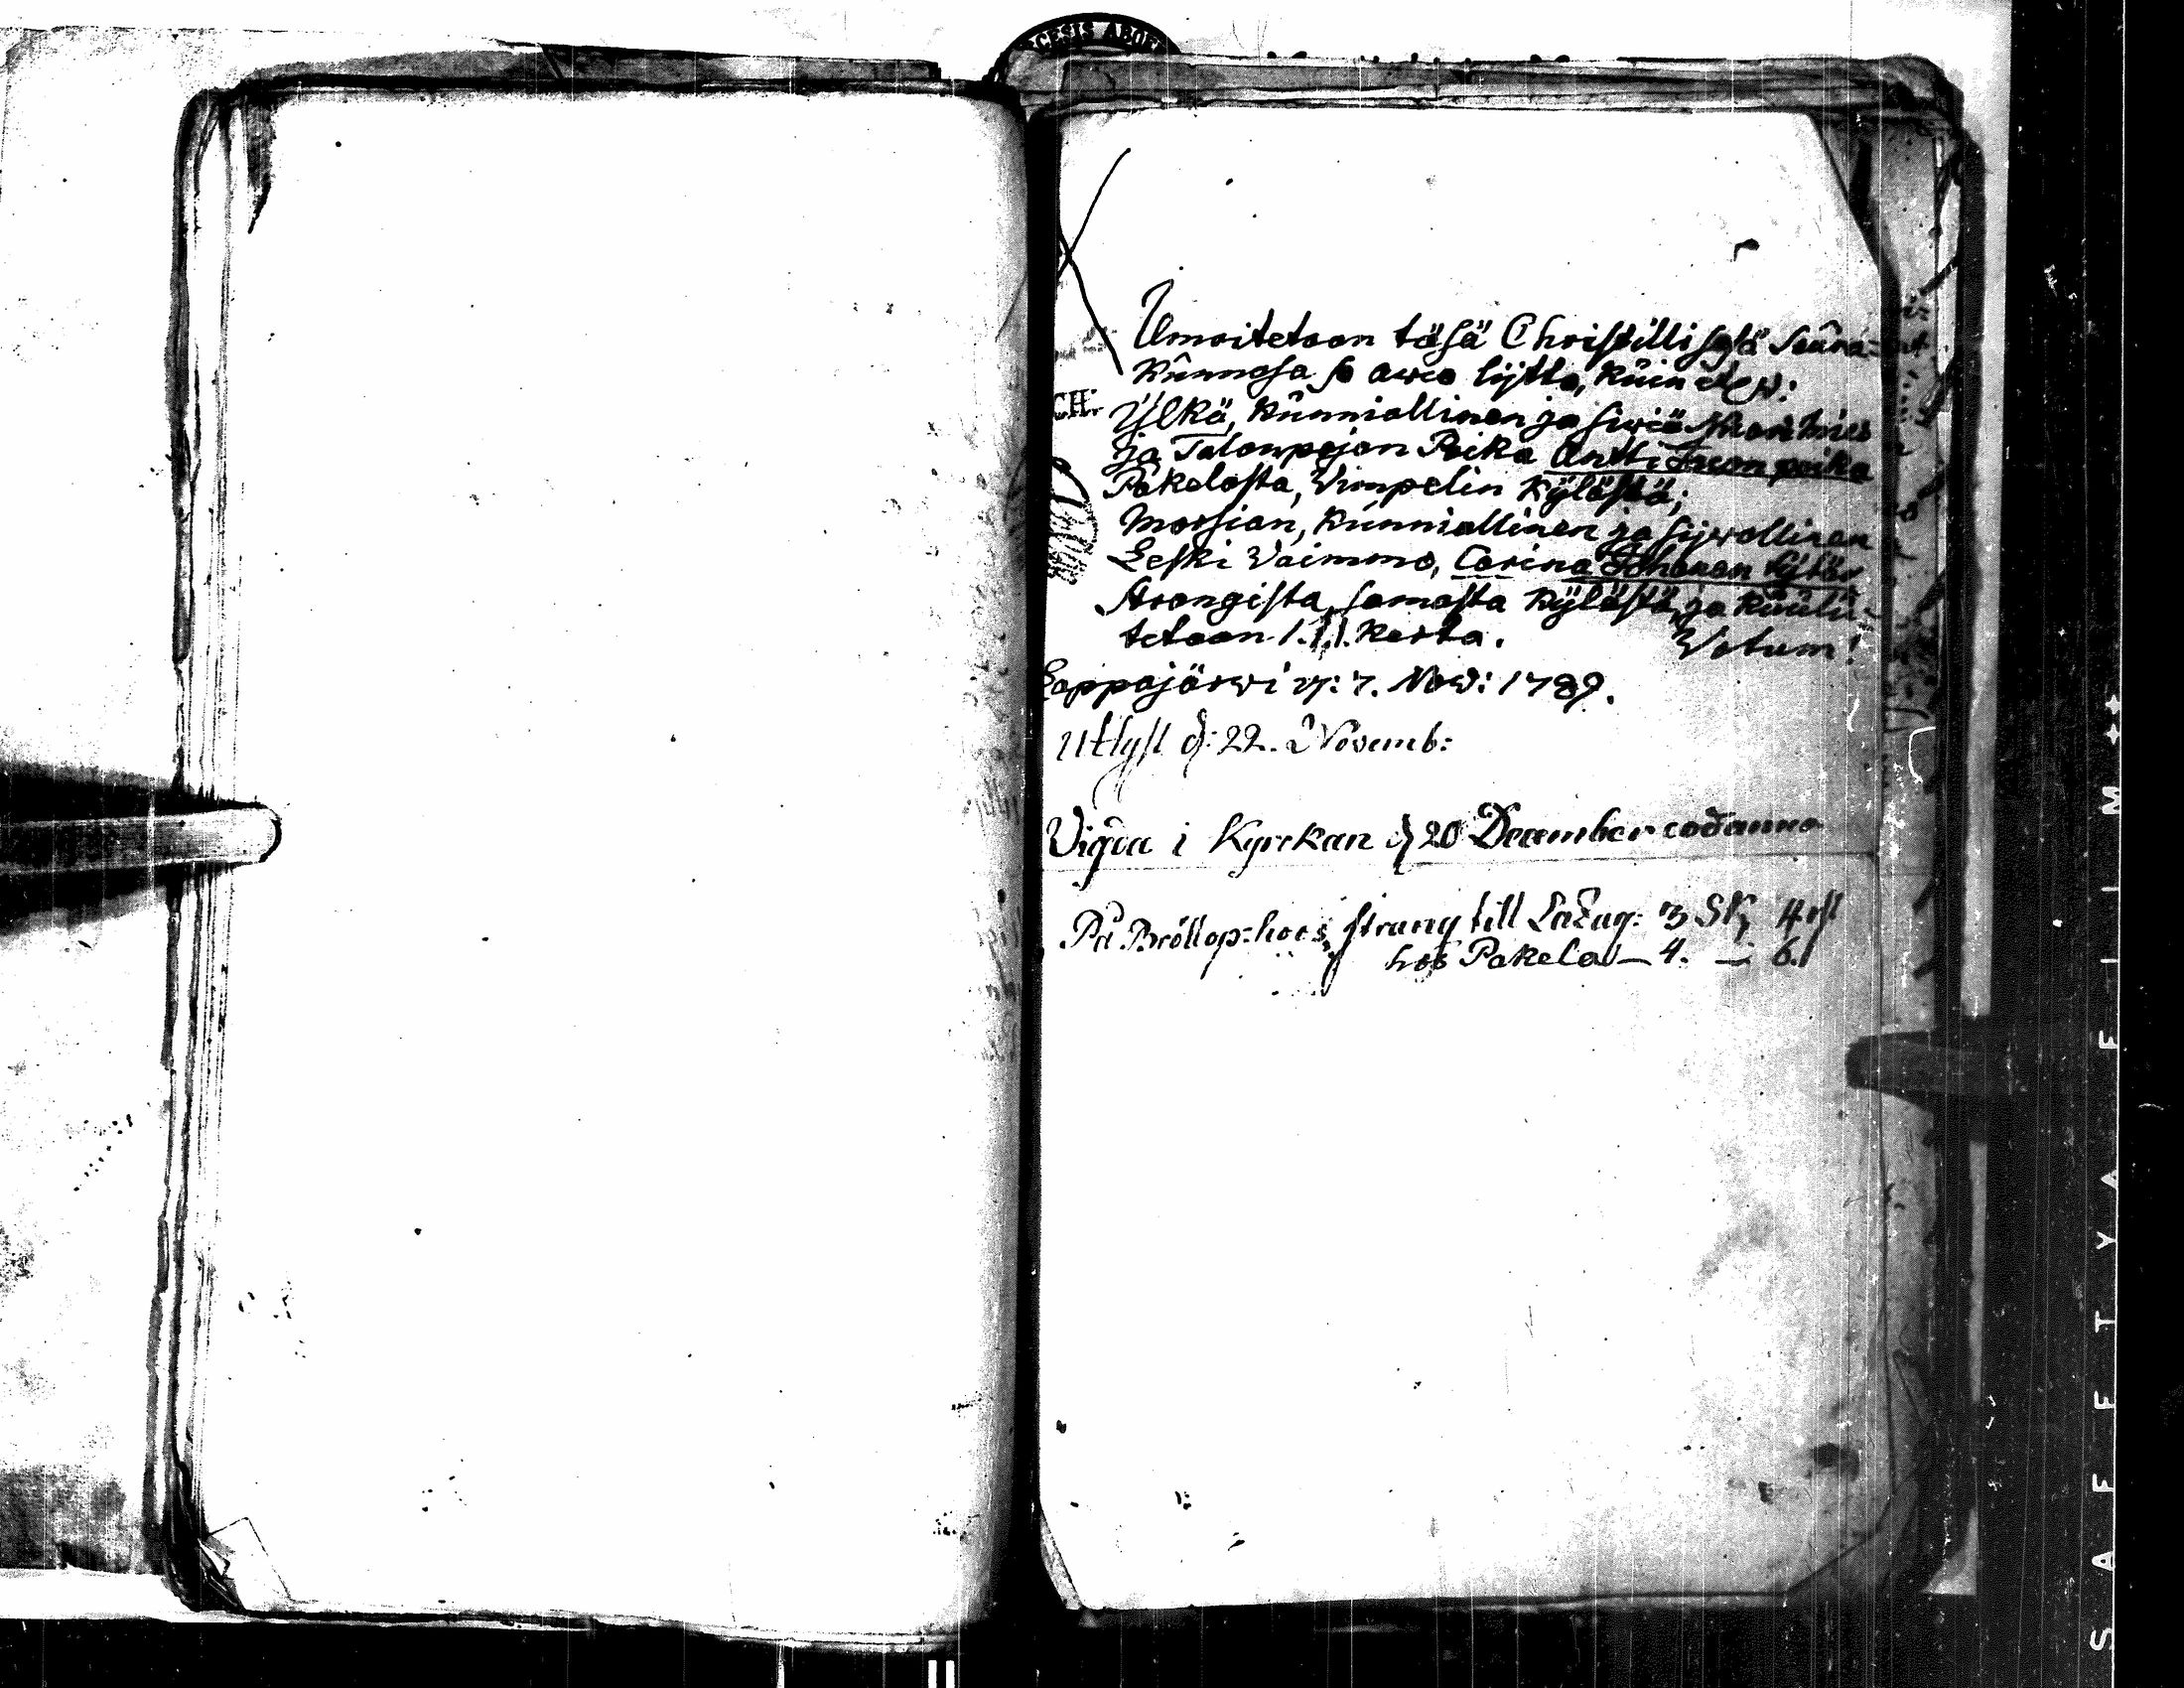 CESIS ABOEN
Ilmoitetaan täsä Christillisesä Seura=
kunnasa se awio lijtto, kuin on:
CH:
Ylkä, kunniallinen ja siwiä Nuorimies
ja Talonpojan Poika Antti Juonpoika
Pakelasta, Wimpelin kylästä;
Morsian, kunniallinen ja sijwollinen
Leski Waimmo, Carina Johanan tytär
Strangista, samasta kylästä, ja kuulu=
tetaan 1. kerta. Votum!
Lappajärwi d: 7. Nov: 1789.
Utlyst d: 22. Novemb:
Vigda i Kyrkan d 20 December eod anno
På Bröllop: hoos Strang till Lazar: 3 Sk 4 rst
hos Pakela — 4. — 6.
SAFETY FILM